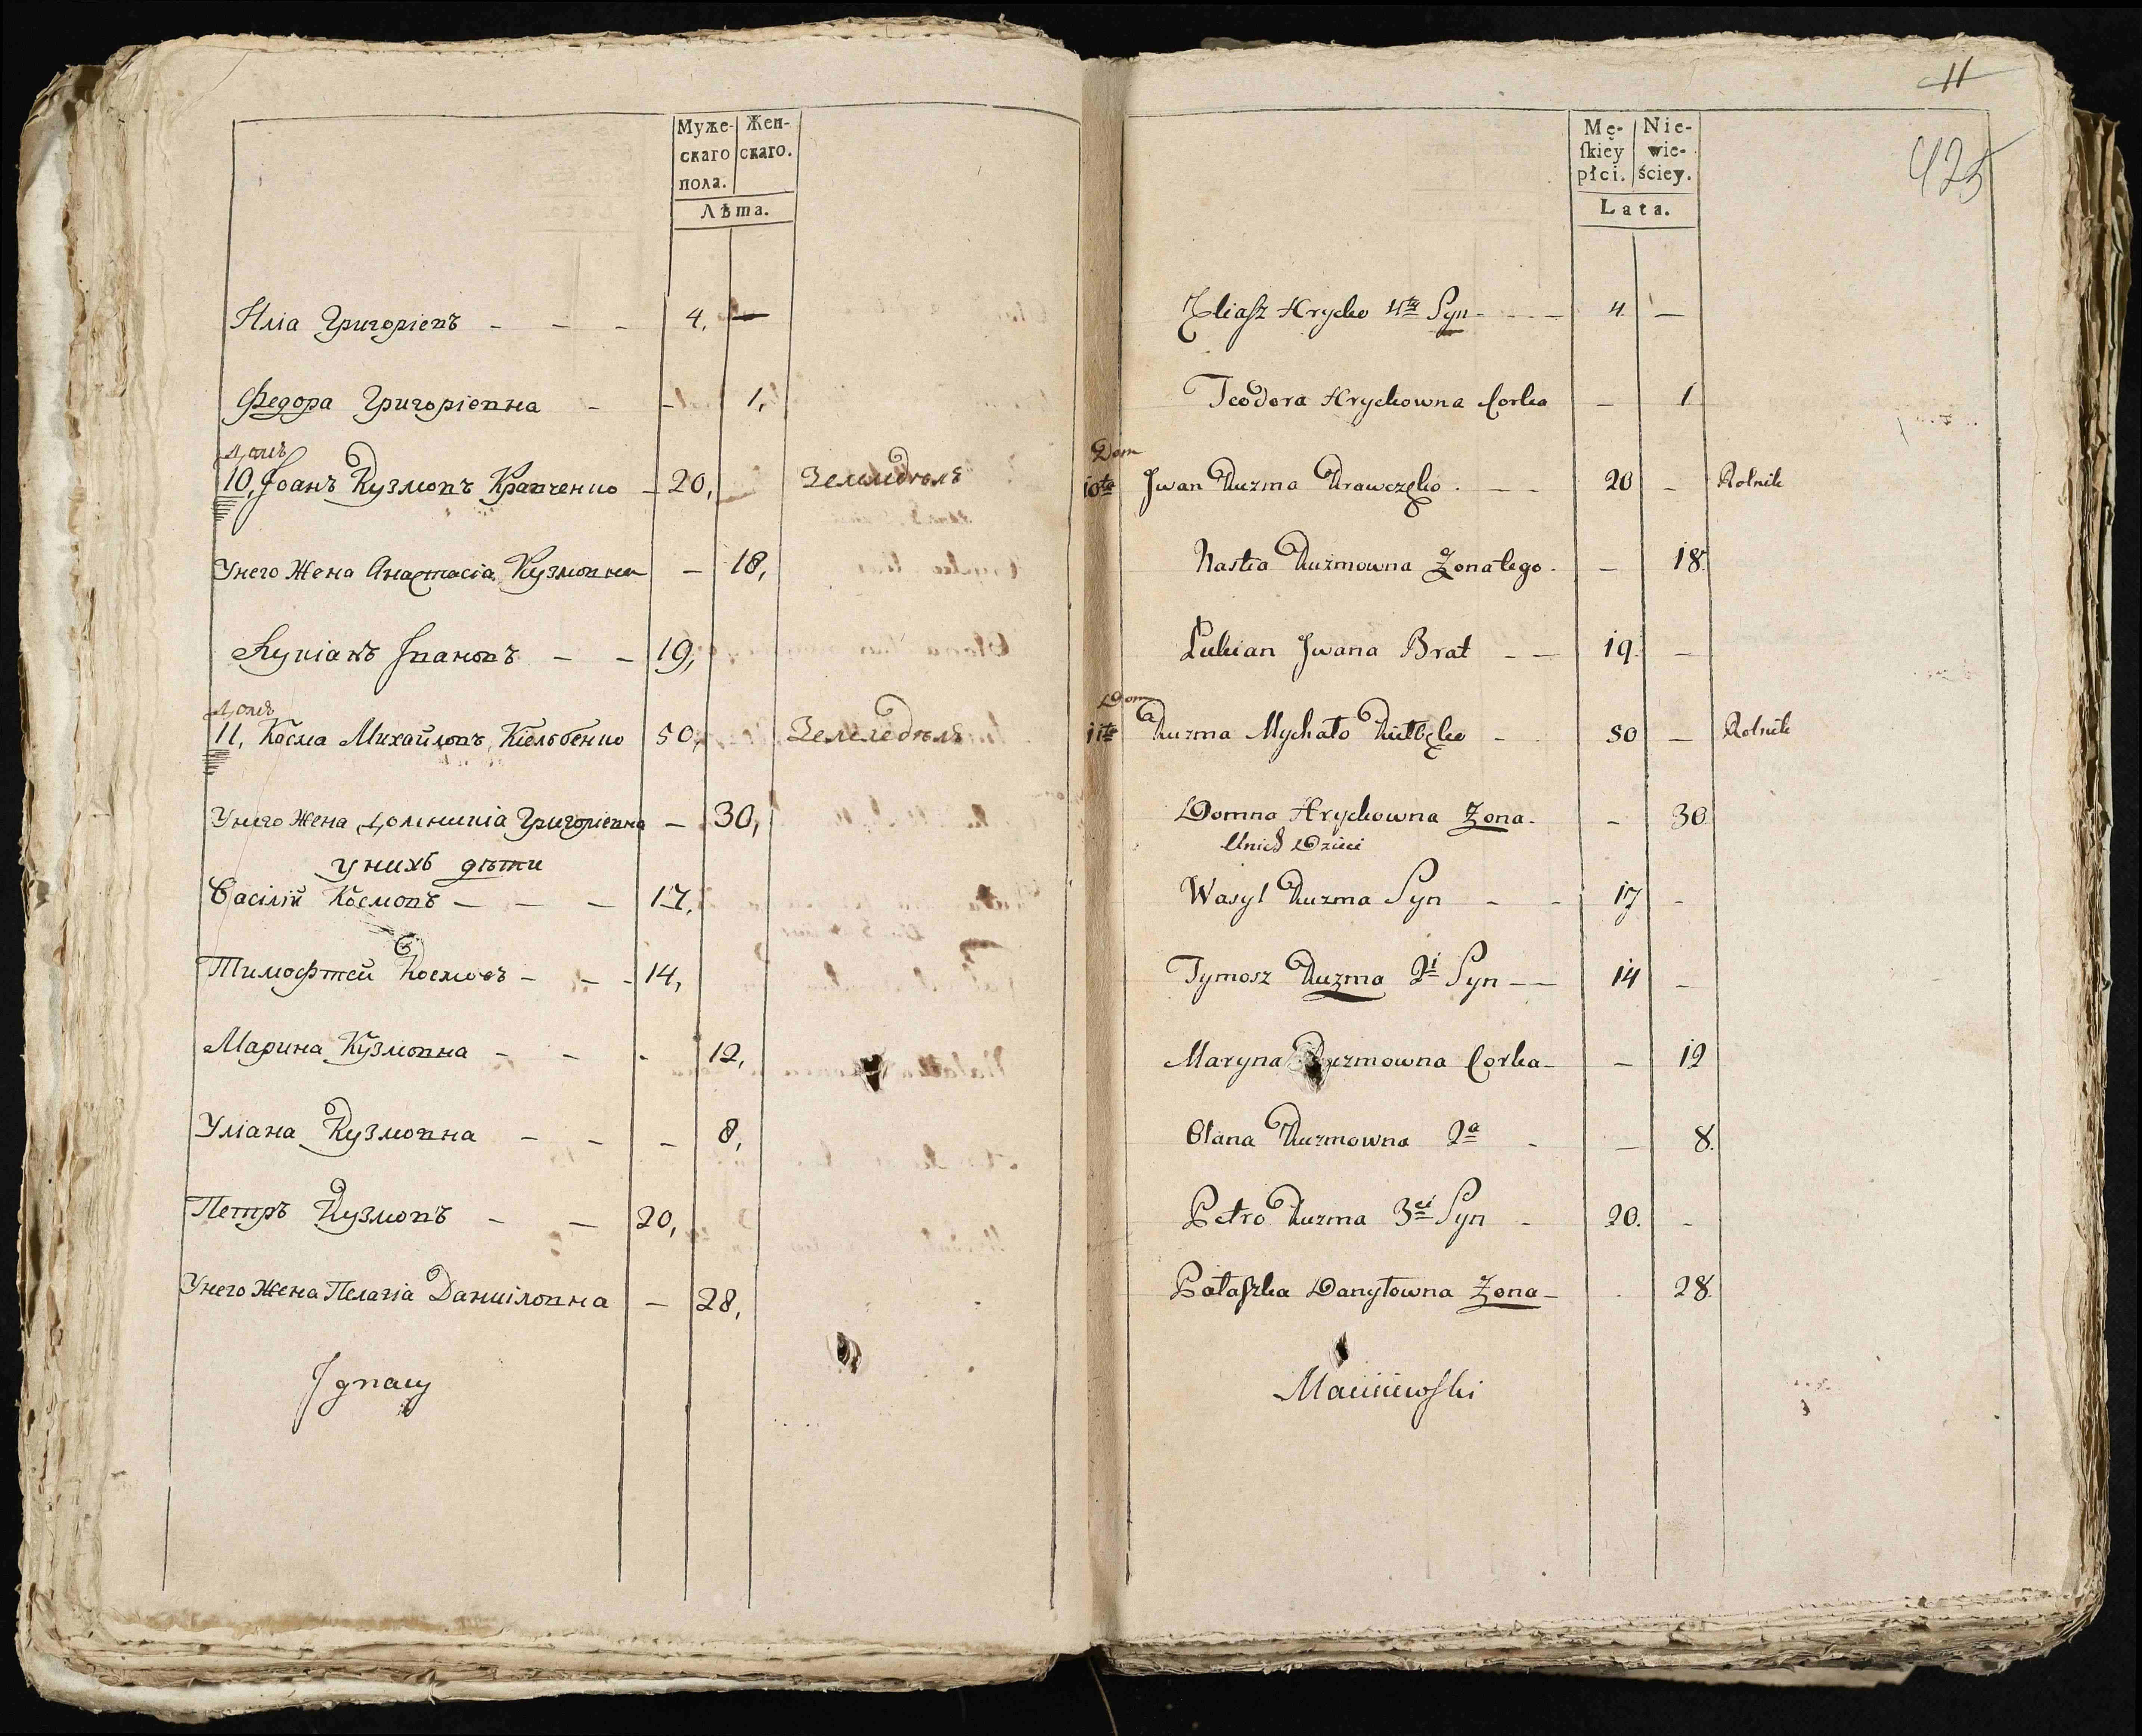 Муже-
скаго
пола.
Жен-
скаго.
Лѣта.
Иліа Григоріевъ - - - 4, —
Федора Григоріевна - - 1,
Домъ
10, Іоанъ Кузмовъ Кравченко - 20, Земледѣлъ
Унего Жена Анастасіа Кузмовна - 18,
Лукіанъ Івановъ - - 19,
Домъ
11, Косма Михайловъ Кіельбенко 50, Земледѣлъ
Унего Жена Доминикіа Григоріевна - 30,
унихъ дѣти
Василій Космовъ - - - 17,
Тимофтей Космовъ - - - 14,
Марина Кузмовна - - - 12,
Уліана Кузмовна - - - 8,
Петръ Кузмовъ - - 20,
Унего Жена Пелагіа Даниіловна - 28,
Ignacy
11
425
Mę-
ſkiey
płci.
Nie-
wie-
ściey.
Lata.
Eliaſz Hryćko 4ty Syn - - - 4 —
Teodora Hryckowna Corka — 1
Dom
10ty Jwan Kuzma Krawczęko . - - 20 - Rolnik
Nastia Kuzmowna Zonatego - — 18.
Lukian Jwana Brat - - 19. —
Dom
11ty Kuzma Mychało Kiełbęko - 50 — Rolnik
Domna Hryckowna Zona - - 30
Unich Dzieci
Wasyl Kuzma Syn - - 17 -
Tymosz Kuzma 2i Syn - - 14 -
Maryna Kuzmowna Corka - — 12
Olana Kuzmowna 2a - — 8.
Petro Kuzma 3ci Syn - 20. -
Połaſzka Danyłowna Zona - . 28.
Maciiewſki